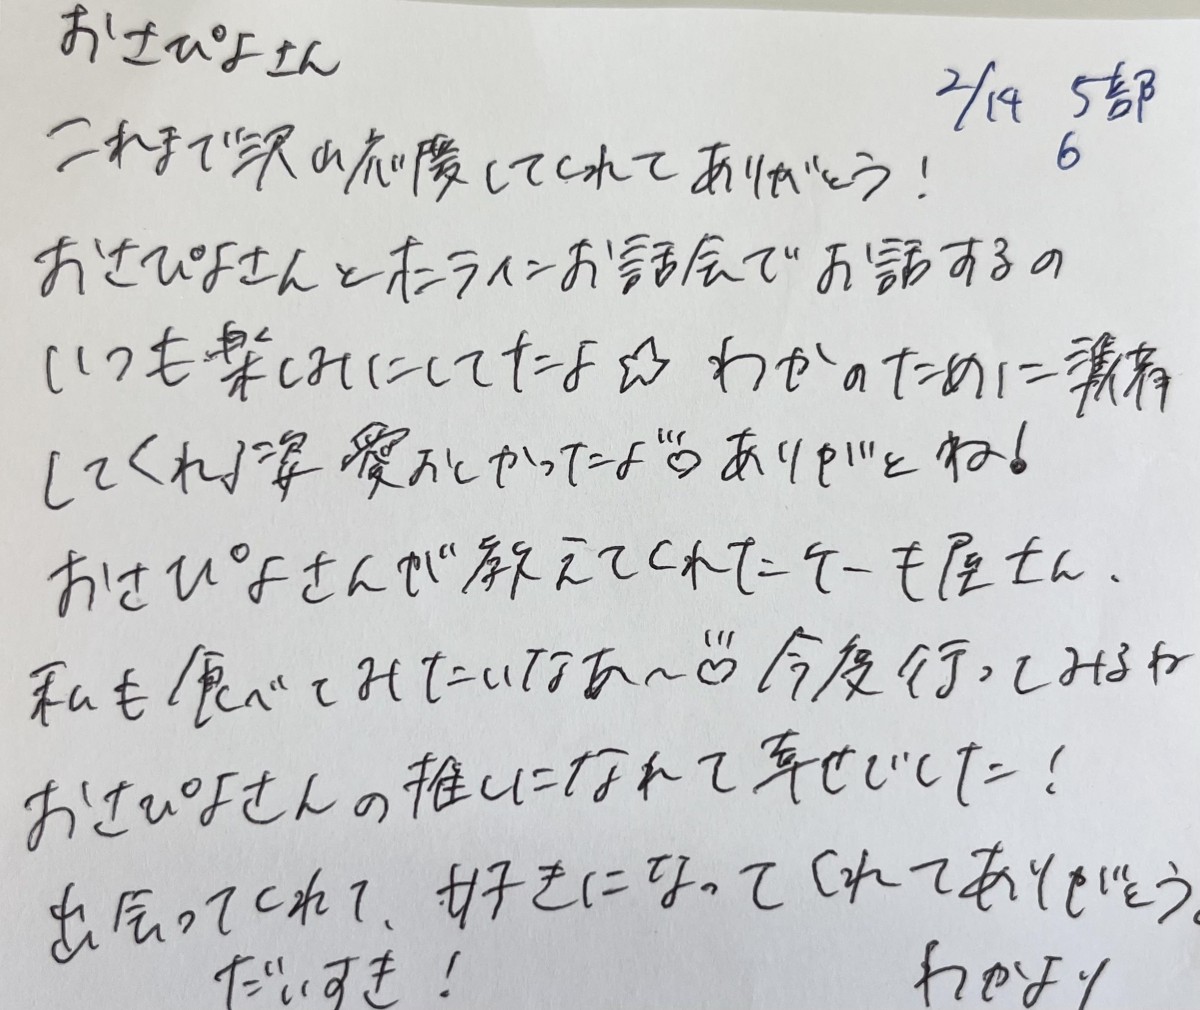 おさぴよさん
2/14 5部
6
これまで沢山応援してくれてありがとう!
おさぴよさんとオンラインお話会でお話するの
いつも楽しみにしてたよ☆ わかのために準備
してくれる姿 愛おしかったよ♡ ありがとね!
おさぴよさんが教えてくれたケーキ屋さん、
私も食べてみたいなあ〜♡ 今度行ってみるね
おさぴよさんの推しになれて幸せでした!
出会ってくれて、好きになってくれてありがとう。
だいすき!
わかより